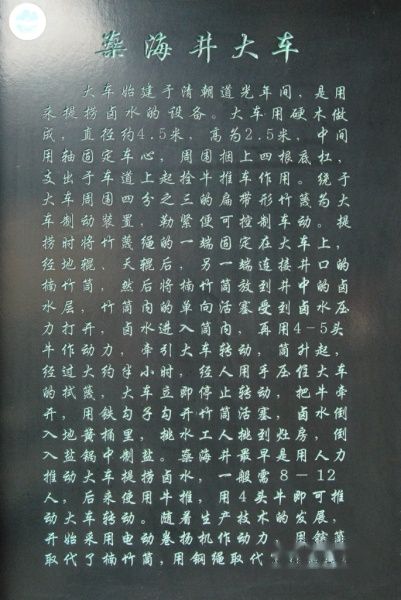 燊海井大车
大车始建于清朝道光年间，是用
来提捞卤水的设备。大车用硬木做
成，直径约4.5米，高为2.5米，中间
用轴固定车心，周围捆上四根底杠，
支出于车道上起拴牛推车作用。绕于
大车周围四分之三的扁带形竹篾为大
车制动装置，勒紧便可控制车动。提
捞时将竹篾绳的一端固定在大车上，
经地辊、天辊后，另一端连接井口的
楠竹筒，然后将楠竹筒放到井中的卤
水层，竹筒内的单向活塞受到卤水压
力打开，卤水进入筒内，再用4-5头
牛作动力，牵引大车转动，筒升起，
经过大约半小时，经人用手压住大车
的拭篾，大车立即停止转动，把牛牵
开，用铁勾子勾开竹筒活塞，卤水倒
入地簧桶里，挑水工人挑到灶房，倒
入盐锅中制盐。燊海井最早是用人力
推动大车提捞卤水，一般需8-12
人，后来使用牛推，用4头牛即可推
动大车转动。随着生产技术的发展，
开始采用电动卷扬机作动力，用镔
取代了楠竹筒，用钢绳取代